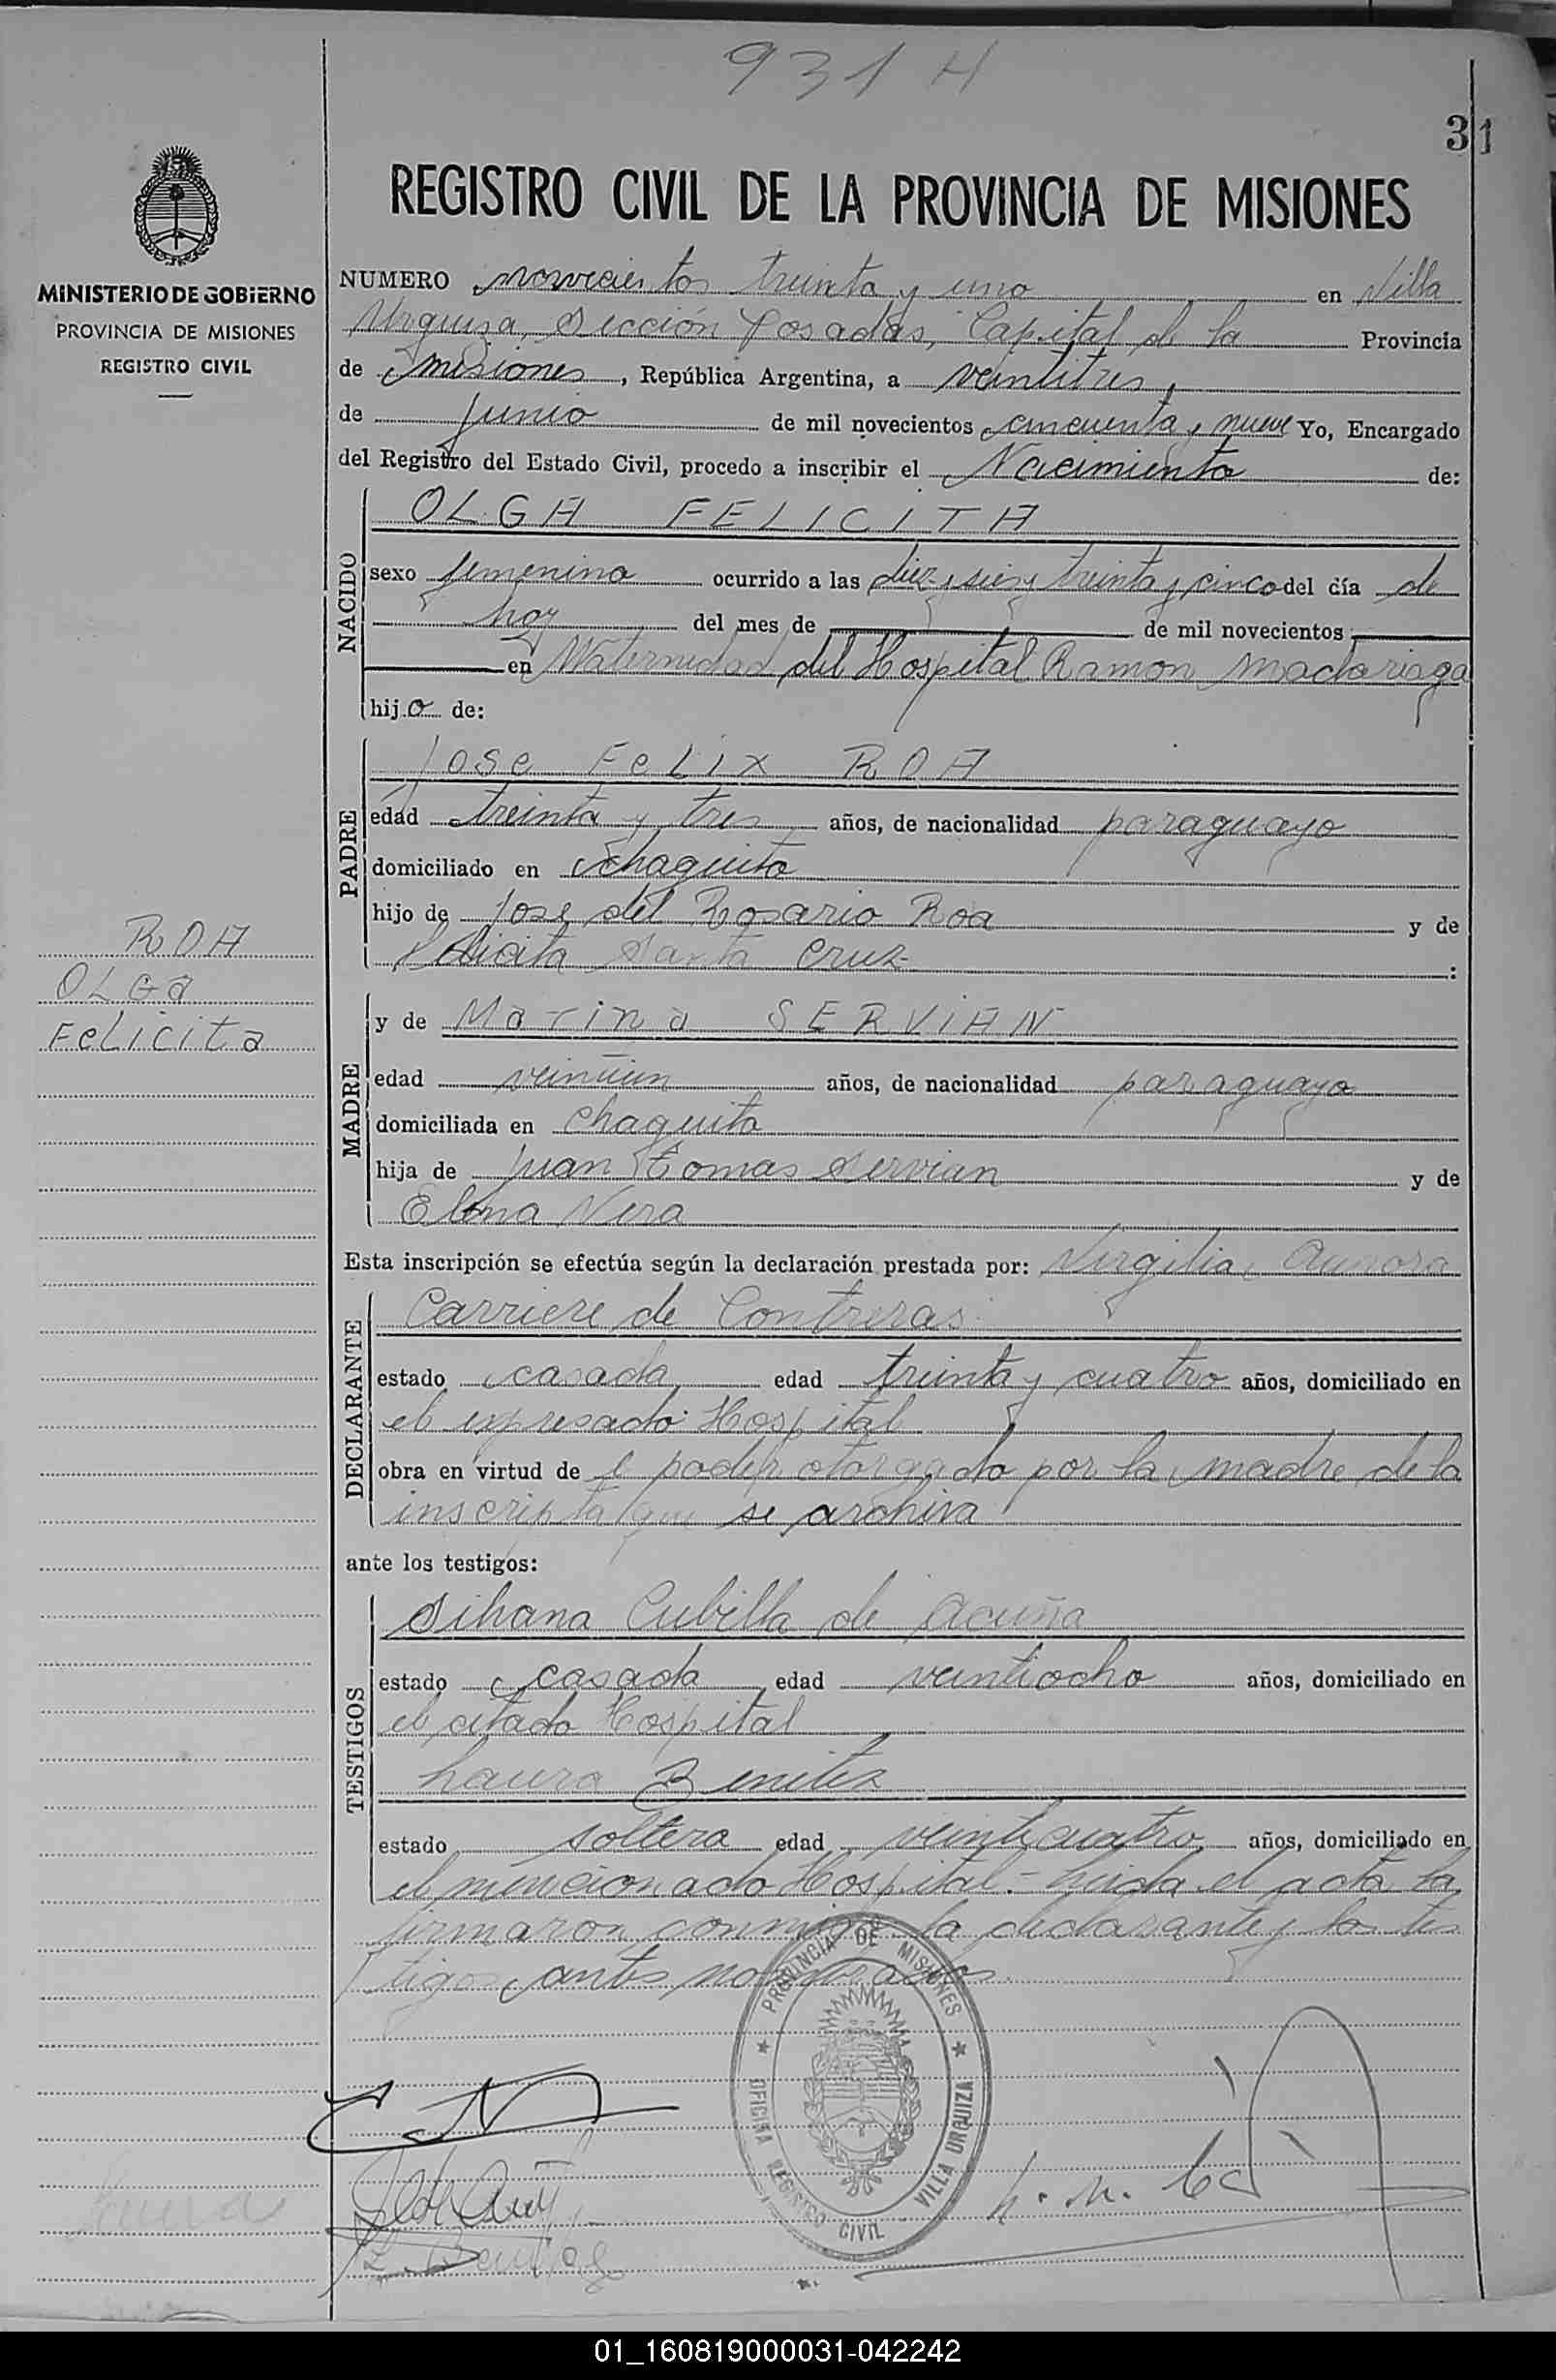 931 H
31
MINISTERIO DE GOBIERNO
PROVINCIA DE MISIONES
REGISTRO CIVIL
ROA
OLGa
FeLicita
REGISTRO CIVIL DE LA PROVINCIA DE MISIONES
NUMERO novecientos treinta y uno en Villa
Urquiza, Sección Posadas, Capital de la Provincia
de Misiones, República Argentina, a veintitres,
de junio de mil novecientos cincuenta y nueve Yo, Encargado
del Registro del Estado Civil, procedo a inscribir el Nacimiento de:
NACIDO
OLGA FELICITA
sexo femenino ocurrido a las diez y seis y treinta y cinco del día de
hoy del mes de de mil novecientos
en Maternidad del Hospital Ramon Madariaga
hija de:
PADRE
Jose FeLix ROA
edad treinta y tres años, de nacionalidad paraguayo
domiciliado en Chaquito
hijo de Jose del Rosario Roa y de
Felicita Santa Cruz :
MADRE
y de Marina SERVIAN
edad veintiun años, de nacionalidad paraguaya
domiciliada en Chaquito
hija de Juan Tomas Servian y de
Elena Vera
Esta inscripción se efectúa según la declaración prestada por: Virgilia Aurora
DECLARANTE
Carriere de Contreras
estado casada edad treinta y cuatro años, domiciliado en
el expresado Hospital
obra en virtud de l poder otorgado por la madre de la
inscripta que se archiva
ante los testigos:
TESTIGOS
Silvana Cubilla de Acuña
estado casada edad veintiocho años, domiciliado en
el citado Hospital
Laura Benitez
estado soltera edad veinticuatro años, domiciliado en
el mencionado Hospital.- Leida el acta la
firmaron conmigo la declarante y los tes
tigos antes nombrados
PROVINCIA DE MISIONES
OFICINA REGISTRO CIVIL VILLA URQUIZA
Laura
L. Benitez
01_160819000031-042242